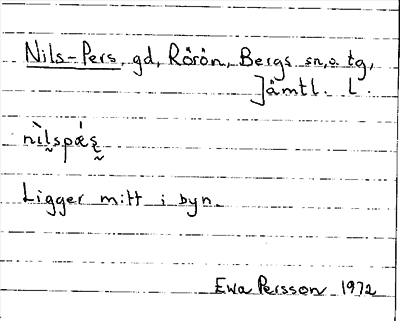 Nils-Pers, gd, Rörön, Bergs sn, o. tg,
Jämtl. L.
nìl̰spǽs̰
Ligger mitt i byn.
Ewa Persson 1972